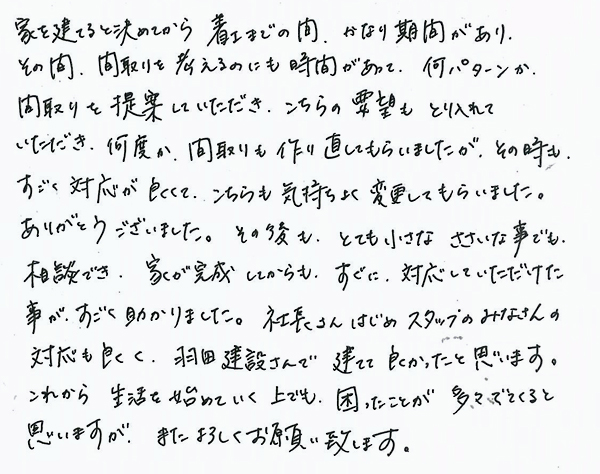 家を建てると決めてから 着工までの間、かなり期間があり、
その間、間取りを考えるのにも時間があって、何パターンか、
間取りを提案していただき、こちらの要望もとり入れて
いただき、何度か、間取りも作り直してもらいましたが、その時も、
すごく対応が良くて、こちらも気持ちよく変更してもらいました。
ありがとうございました。その後も、とても小さな ささいな事でも、
相談でき、家が完成してからも、すぐに、対応していただけた
事が、すごく助かりました。社長さんはじめスタッフのみなさんの
対応も良く、羽田建設さんで 建てて良かったと思います。
これから 生活を始めていく上でも、困ったことが 多々でてくると
思いますが、またよろしくお願い致します。